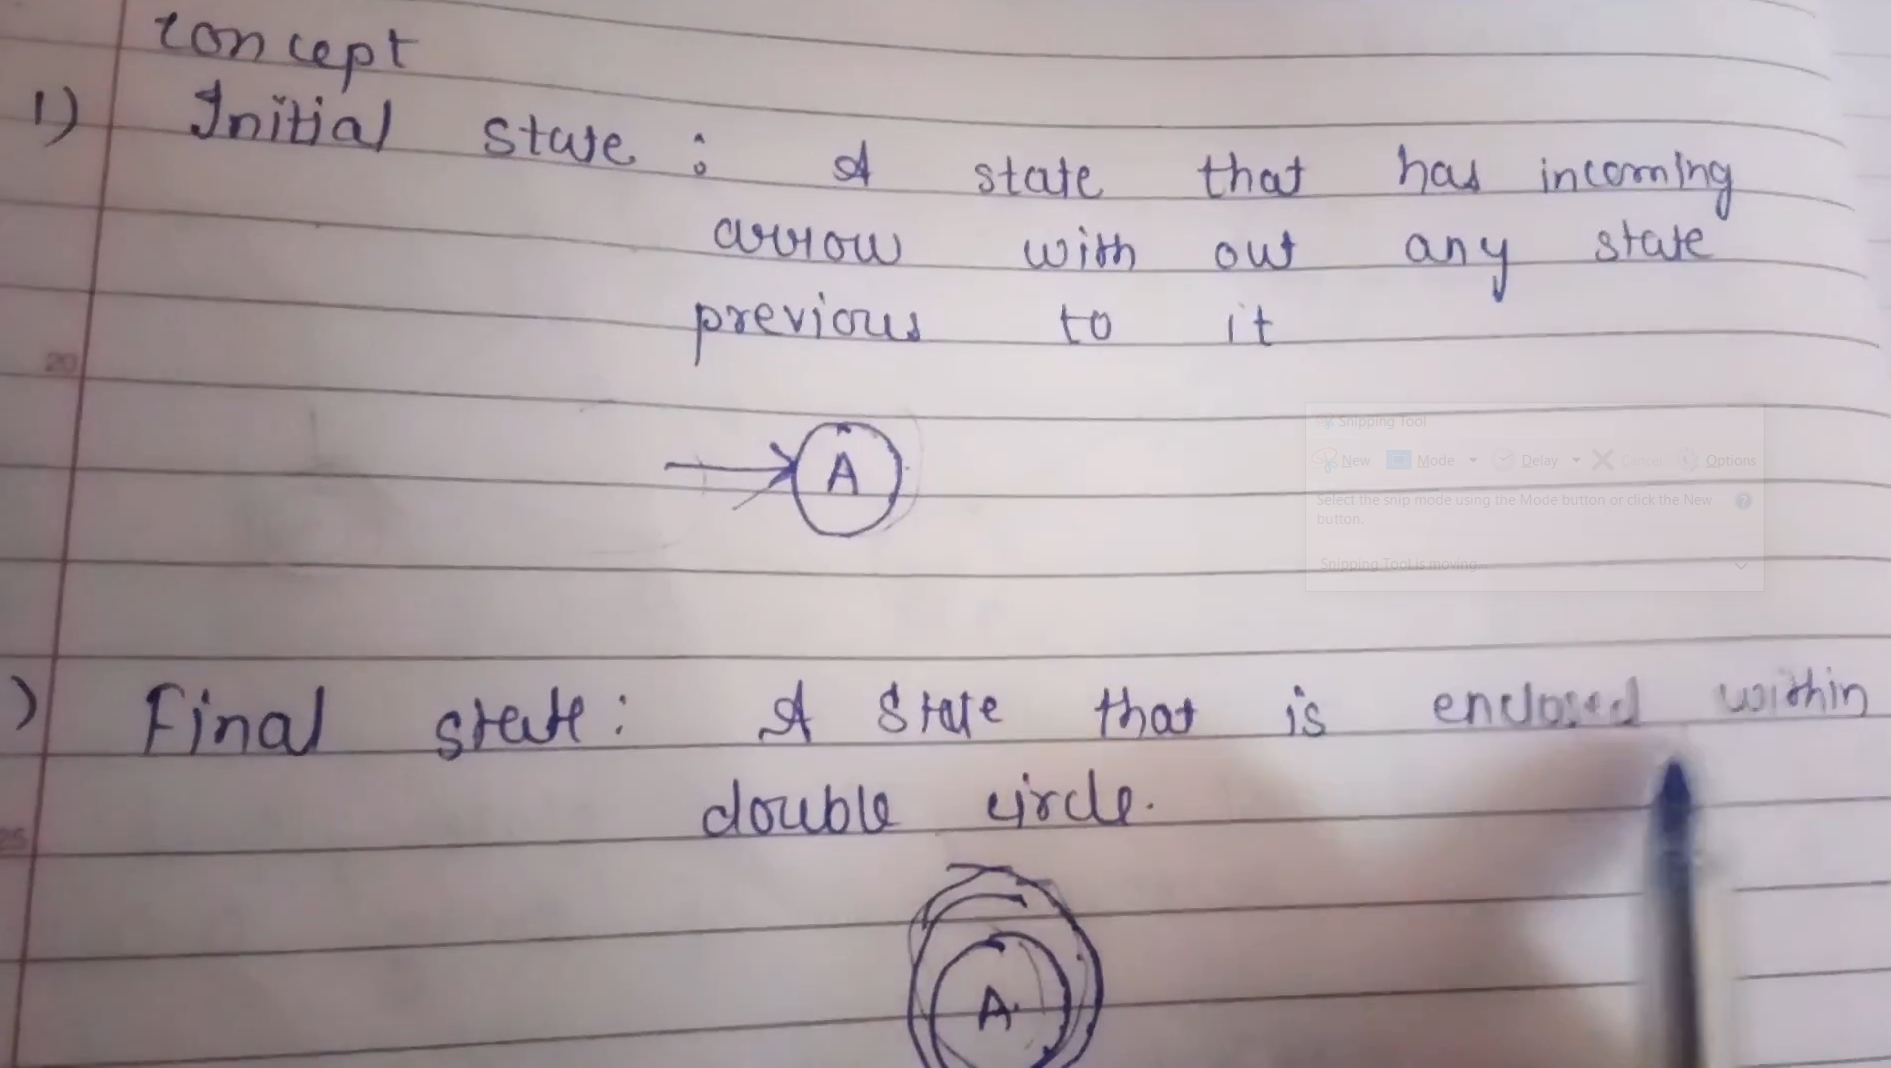 concept
1) Initial state : A state that has incoming
arrow with out any state
previous to it
20
A
Snipping Tool
New Mode Delay Cancel Options
Select the snip mode using the Mode button or click the New
button.
Snipping Tool is moving...
) Final state : A state that is enclosed within
double circle.
25
A